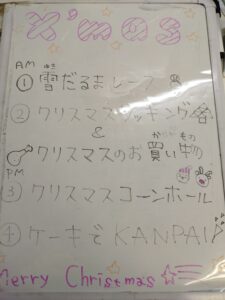 X'mas
AM
①雪だるまレース
ゆき
②クリスマスクッキング
&
クリスマスのお買い物
かいもの
PM
③クリスマスコーンホール
④ケーキでKANPAI
Merry Christmas